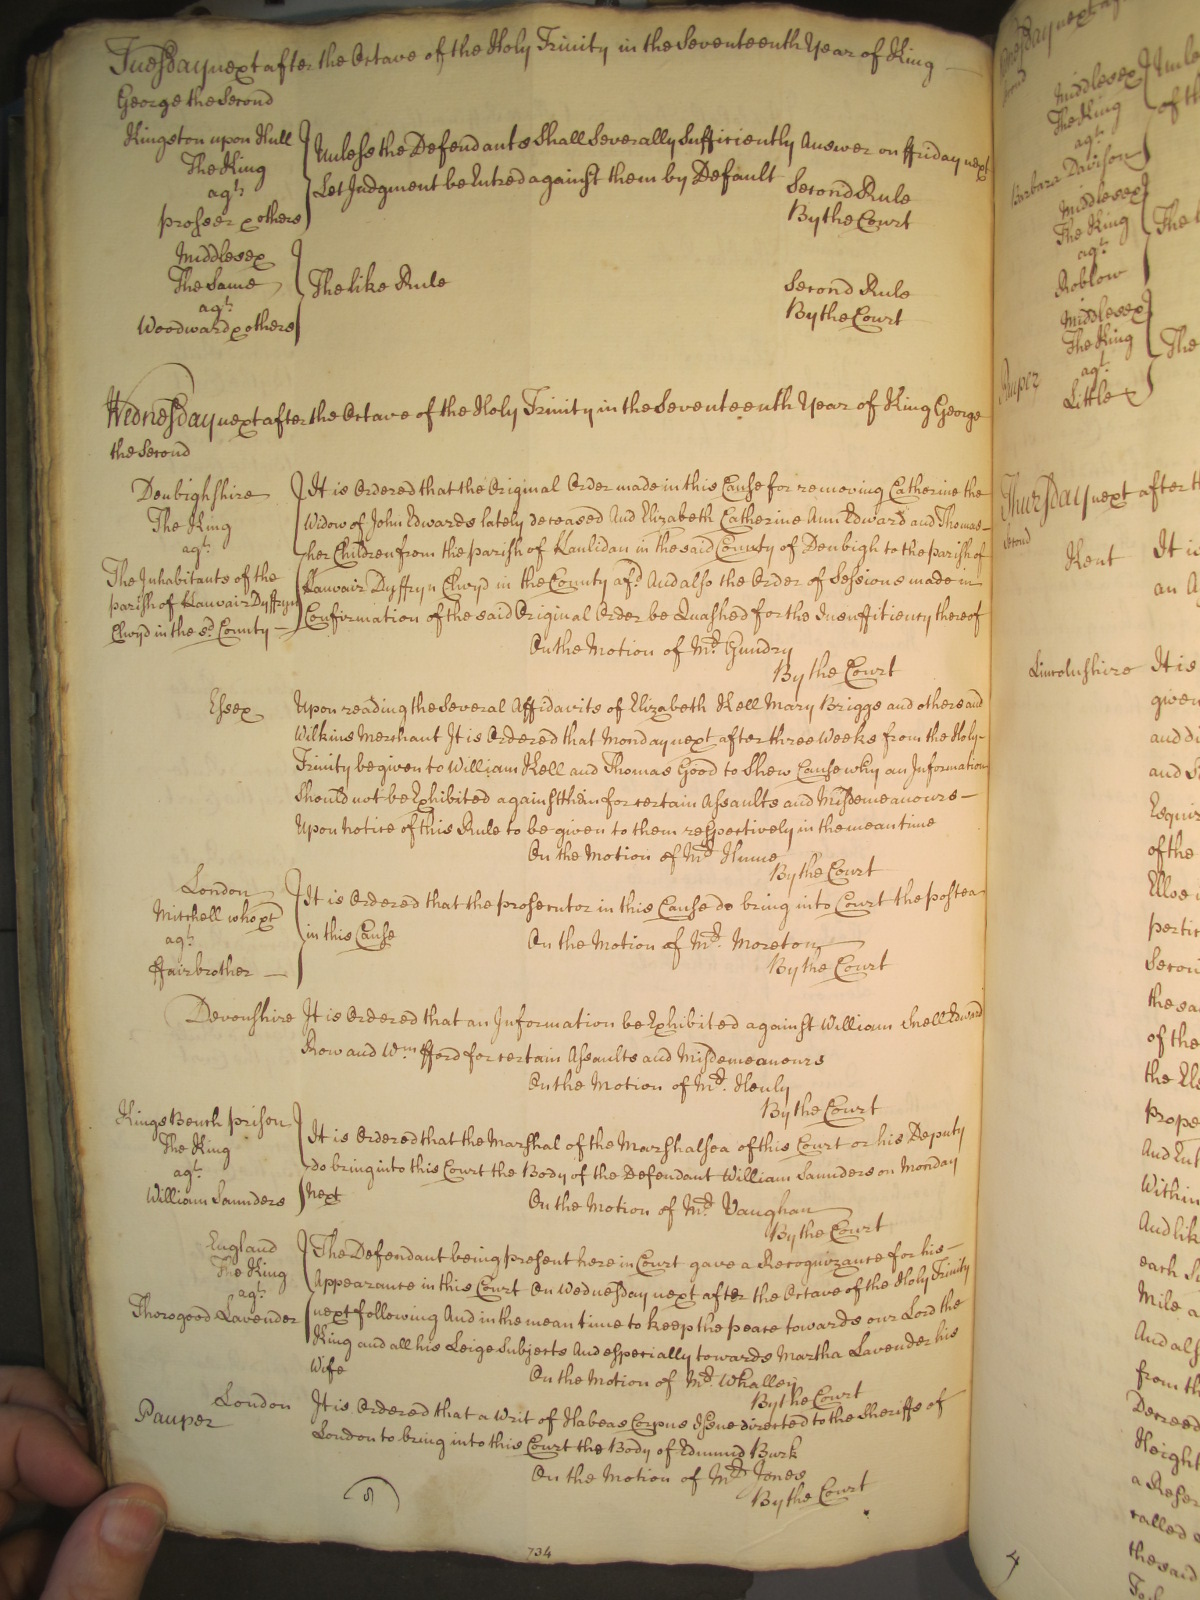 Tuesday next after the Octave of the Holy Trinity in the Seventeenth Year of King
George the Second
Kingston upon Hull
The King
agt.
Prosser & others
Unless the Defendants Shall Severally Sufficiently Answer on ffriday next
Let Judgment be Entred against them by Default
Second Rule
By the Court
Middlesex
The Same
agt.
Woodward & others
The like Rule
Second Rule
By the Court
Wednesday next after the Octave of the Holy Trinity in the Seventeenth Year of King George
the Second
Denbighshire
The King
agt.
The Inhabitants of the
parish of Lanvair Dyffryn
Clwyd in the sd. County
It is Ordered that the Original Order made in this Cause for removing Catherine the
Widow of John Edwards lately deceased And Elizabeth Catherine Ann Edward and Thomas
her Children from the parish of Lanlidan in the said County of Denbigh to the parish of
Lanvair Dyffryn Clwyd in the County afd. And also the Order of Sessions made in
Confirmation of the said Original Order be Quashed for the Insufficiency thereof
On the Motion of Mr. Gundry
By the Court
Essex
Upon reading the Several Affidavits of Elizabeth Kell Mary Briggs and others and
Wilkins Merchant It is Ordered that Monday next after three Weeks from the Holy
Trinity be given to William Kell and Thomas Good to Shew Cause why an Information
Should not be Exhibited against them for certain Assaults and Misdemeanours
Upon notice of this Rule to be given to them respectively in the mean time
On the Motion of Mr. Hume
By the Court
London
Mitchell who &ct
agt.
ffairbrother
It is Ordered that the prosecutor in this Cause do bring into Court the postea
in this Cause
On the Motion of Mr. Moreton
By the Court
Devonshire
It is Ordered that an Information be Exhibited against William Snell Edward
Snow and Wm. fford for certain Assaults and Misdemeanours
On the Motion of Mr. Henly
By the Court
Kings Bench prison
The King
agt.
William Saunders
It is Ordered that the Marshal of the Marshalsea of this Court or his Deputy
do bring into this Court the Body of the Defendant William Saunders on Monday
next
On the Motion of Mr. Vaughan
By the Court
England
The King
agt.
Thorogood Lavender
The Defendant being present here in Court gave a Recognizance for his
Appearance in this Court On Wednesday next after the Octave of the Holy Trinity
next following And in the mean time to keep the peace towards our Lord the
King and all his Leige Subjects And especially towards Martha Lavender his
Wife
On the Motion of Mr. Whalley
By the Court
London
Pauper
It is Ordered that a Writ of Habeas Corpus Issue directed to the Sheriffs of
London to bring into this Court the Body of Edmund Burk
On the Motion of Mr. Jones
By the Court
734
Middlesex
The King
agt.
Barbara Davison
of th
Middlesex
The King
agt.
Roblow
The
Middlesex
The King
agt.
Little
Pauper
The
Thursday next after th
Second
Kent
It is
an A
Lincolnshire
It is
given
and di
and S
Esquir
of the
Elloe
pertic
Secon
the sa
of the
the El
prope
And Ent
Within
And lik
each S
Mile a
And als
from th
Decreed
Height
a Refer
called
the said
4